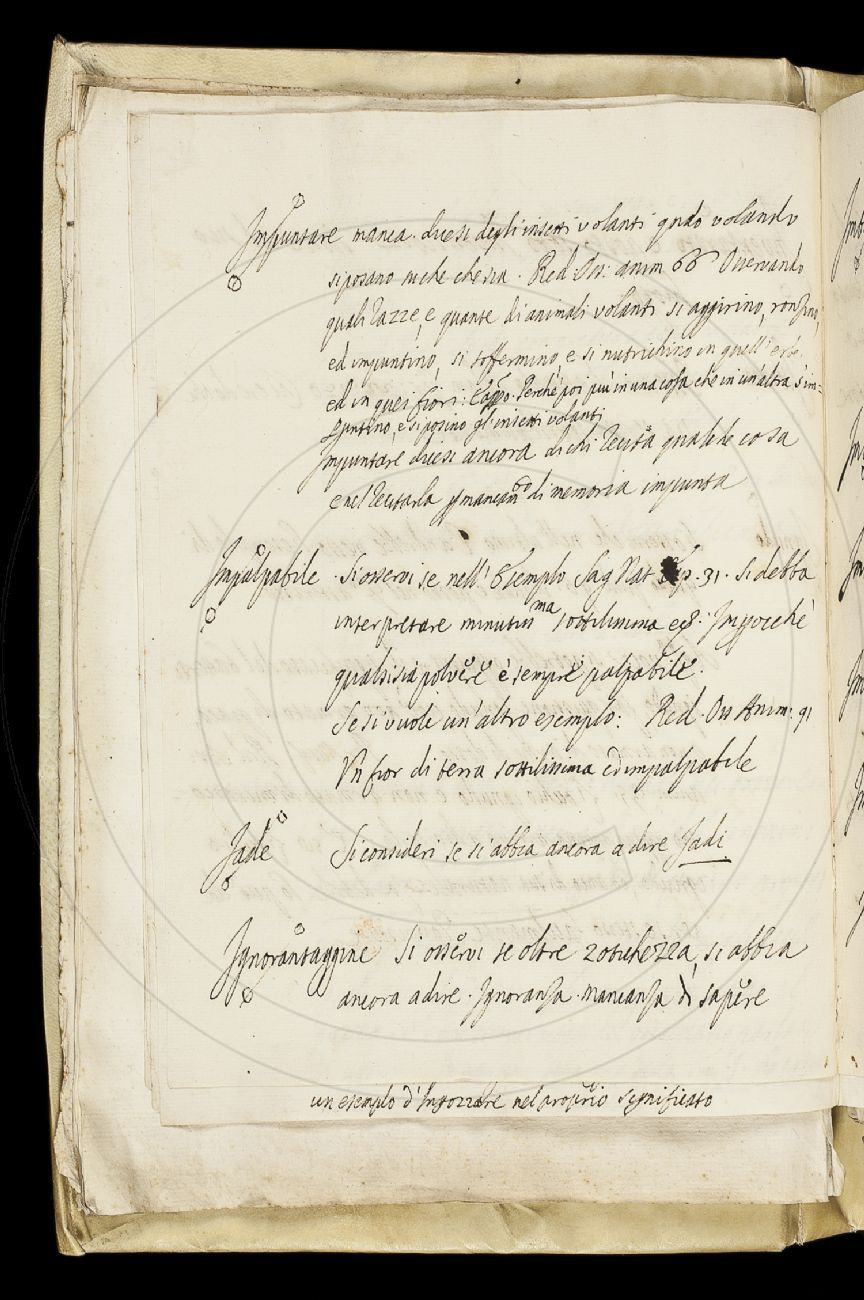 Impuntare manca. dicesi degli insetti volanti qndo volando
si posano su che che sia. Red: Oss: anim 66 Osservando
quali razze, e quante di animali volanti si aggirino, ronzino,
ed impuntino, si soffermino, e si nutrichino in quell'erbe,
ed in quei fiori: E appo. Perchè poi più in una cosa che in un'altra s'im-
puntino, e si posino gl'insetti volanti
Impuntare dicesi ancora di chi recita qualche cosa
e nel recitarla p mancanza di memoria impunta
Impalpabile Si osservi se nell'Esemplo Sag Nat Esp. 31. si debba
interpretare minutissma sottilissima &c: Impocchè
qualsisia polvere è sempre palpabile.
Se si vuole un'altro esemplo: Red. Oss Anim: 91
Un fior di terra sottilissima ed impalpabile
Jade Si consideri se si abbia ancora a dire Jadi
Ignorantaggine Si osservi se oltre zotichezza, si abbia
ancora a dire. Ignoranza. Mancanza di sapere
un esemplo d'Ingozzare nel proprio significato